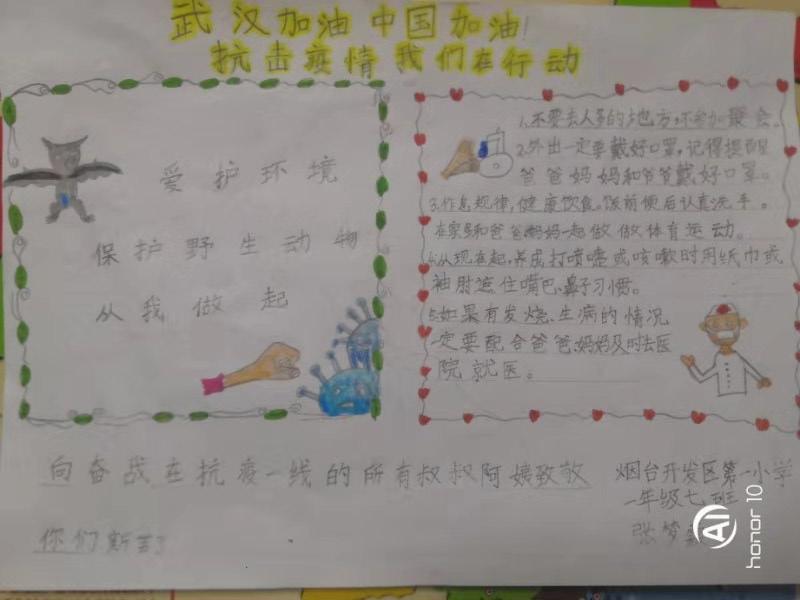 武汉加油 中国加油!
抗击疫情 我们在行动
爱护环境
保护野生动物
从我做起
1.不要去人多的地方环参加聚会。
2.外出一定要戴好口罩,记得提醒
爸爸妈妈和爷爷戴好口罩。
3.作息规律,健康饮食。饭前便后认真洗手。
在家多和爸爸妈妈一起做做体育运动。
4.从现在起,养成打喷嚏或咳嗽时用纸巾或
袖肘遮住嘴巴、鼻子习惯。
5.如果有发烧、生病的情况
一定要配合爸爸妈妈及时去医
院就医。
向奋战在抗疫一线的所有叔叔阿姨致敬
你们辛苦了
烟台开发区第一小学
一年级七班
张梦
AI
honor 10